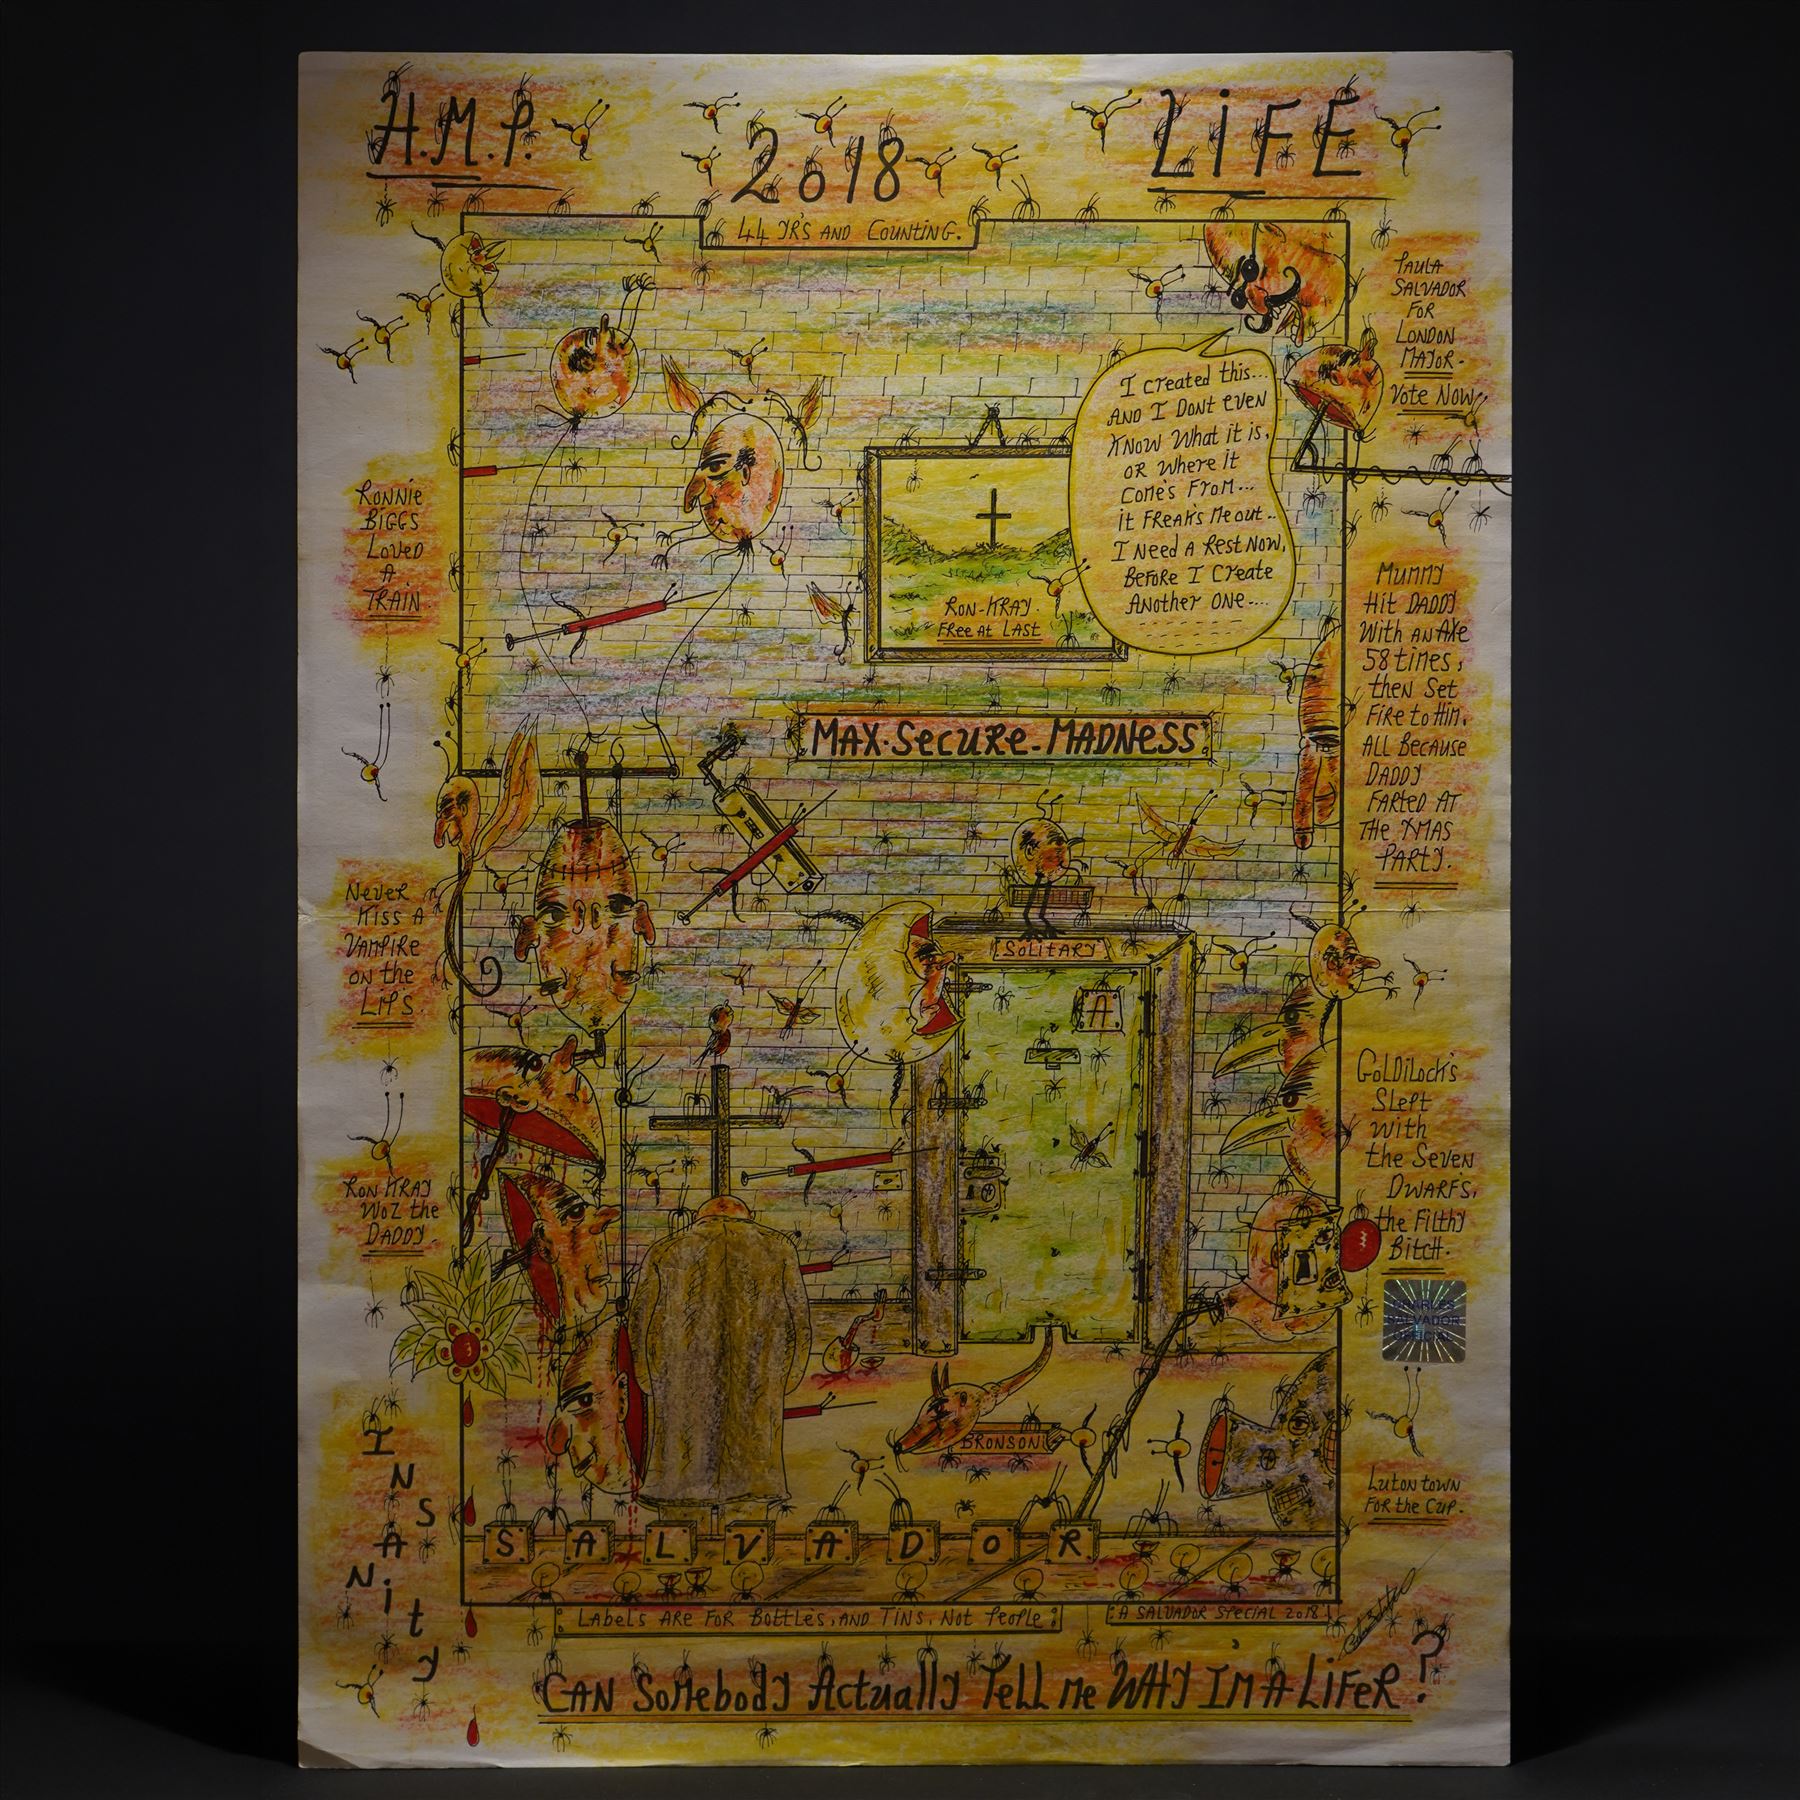 H.M.P.
2018
LiFE
44 YR'S AND COUNTING.
PAULA
SALVADOR
FOR
LONDON
MAYOR.
VOTE NOW
I created this...
AND I DONT EVEN
KNOW WHAT it is,
OR WHERE it
COME'S FROM...
it FREAK'S ME OUT..
I NEED A REST NOW,
BEFORE I CREATE
ANOTHER ONE....
RONNiE
BIGGS
LOVED
A
TRAIN.
RON-KRAY.
FREE AT LAST
MUMMY
Hit DADDY
With AN AXE
58 tiMES,
tHEN SEt
FIRE to HiM,
ALL BECAUSE
DADDY
FARTED AT
THE XMAS
PARTY.
MAX-SECURE-MADNESS
NEVER
KISS A
VAMPIRE
ON the
LiP'S.
SOLITARY
A
GOLDILOCK'S
SLEPT
WITH
the SEVEN
DWARFS,
the FILTHY
BITCH.
RON KRAY
WOZ the
DADDY.
CHARLES
SALVADOR
OFFICIAL
BRONSON
INSANity
LUTON TOWN
FOR the CUP.
SALVADOR
LABELS ARE FOR BOTTLES, AND TINS, NOT PEOPLE
A SALVADOR SPECIAL 2018
CAN SOMEBODY ACTUALLY TELL ME WHY I'M A LiFER?